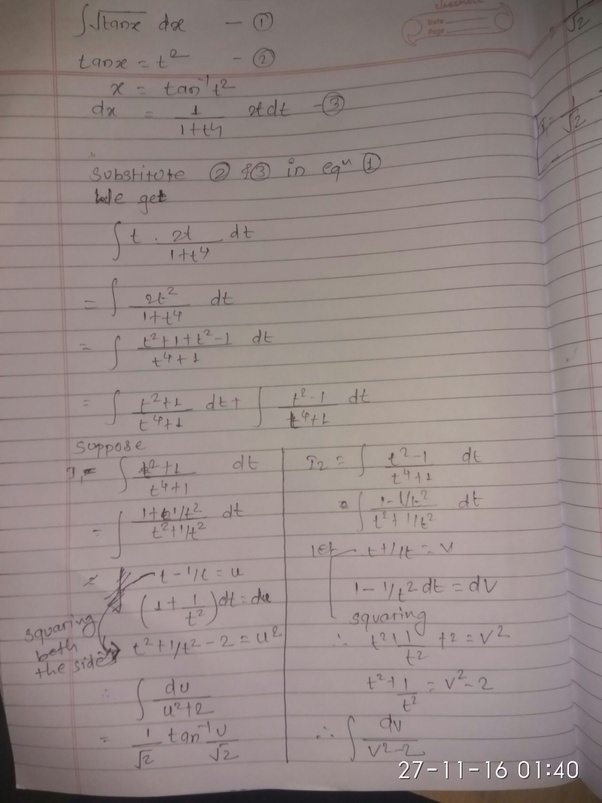 ∫√tanx dx — ①
tanx = t² — ②
x = tan⁻¹t²
dx = 1/(1+t4) 2tdt — ③
Substitute ② & ③ in eqⁿ ①
We get
∫ t · 2t/(1+t4) dt
= ∫ 2t²/(1+t4) dt
= ∫ (t²+1+t²-1)/(t⁴+1) dt
= ∫ (t²+1)/(t⁴+1) dt + ∫ (t²-1)/(t⁴+1) dt
Suppose
I₁ = ∫ (t²+1)/(t⁴+1) dt
= ∫ (1+1/t²)/(t²+1/t²) dt
t-1/t = u
(1+1/t²)dt = du
squaring
both
the sides
t²+1/t²-2 = u²
∴ ∫ du/(u²+2)
= 1/√2 tan⁻¹ u/√2
I₂ = ∫ (t²-1)/(t⁴+1) dt
= ∫ (1-1/t²)/(t²+1/t²) dt
let t+1/t = v
1-1/t² dt = dv
squaring
∴ t²+1/t² +2 = v²
t²+1/t² = v²-2
∴ ∫ dv/(v²-2)
Date
Page
1/√2
1/√2
27-11-16 01:40